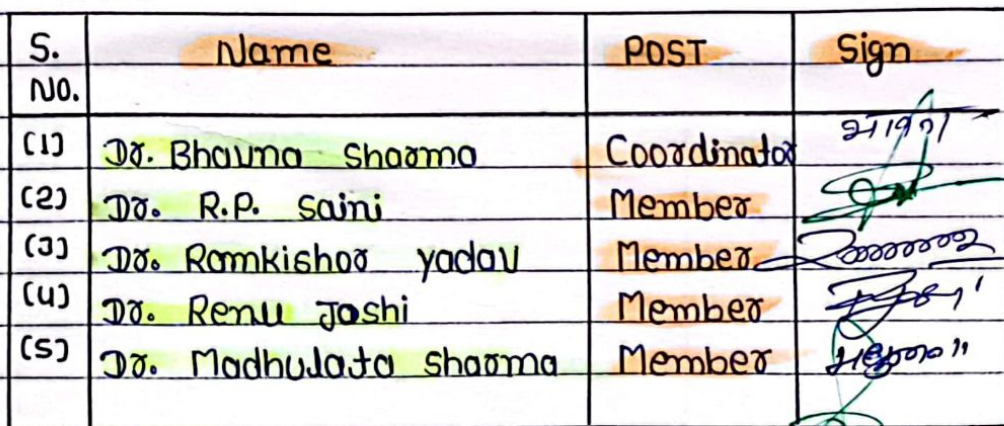 S. NO. Name POST Sign
(1) Dr. Bhavna Sharma Coordinator भावना
(2) Dr. R.P. Saini Member
(3) Dr. Ramkishor yadav Member
(4) Dr. Renu Joshi Member
(5) Dr. Madhulata Sharma Member